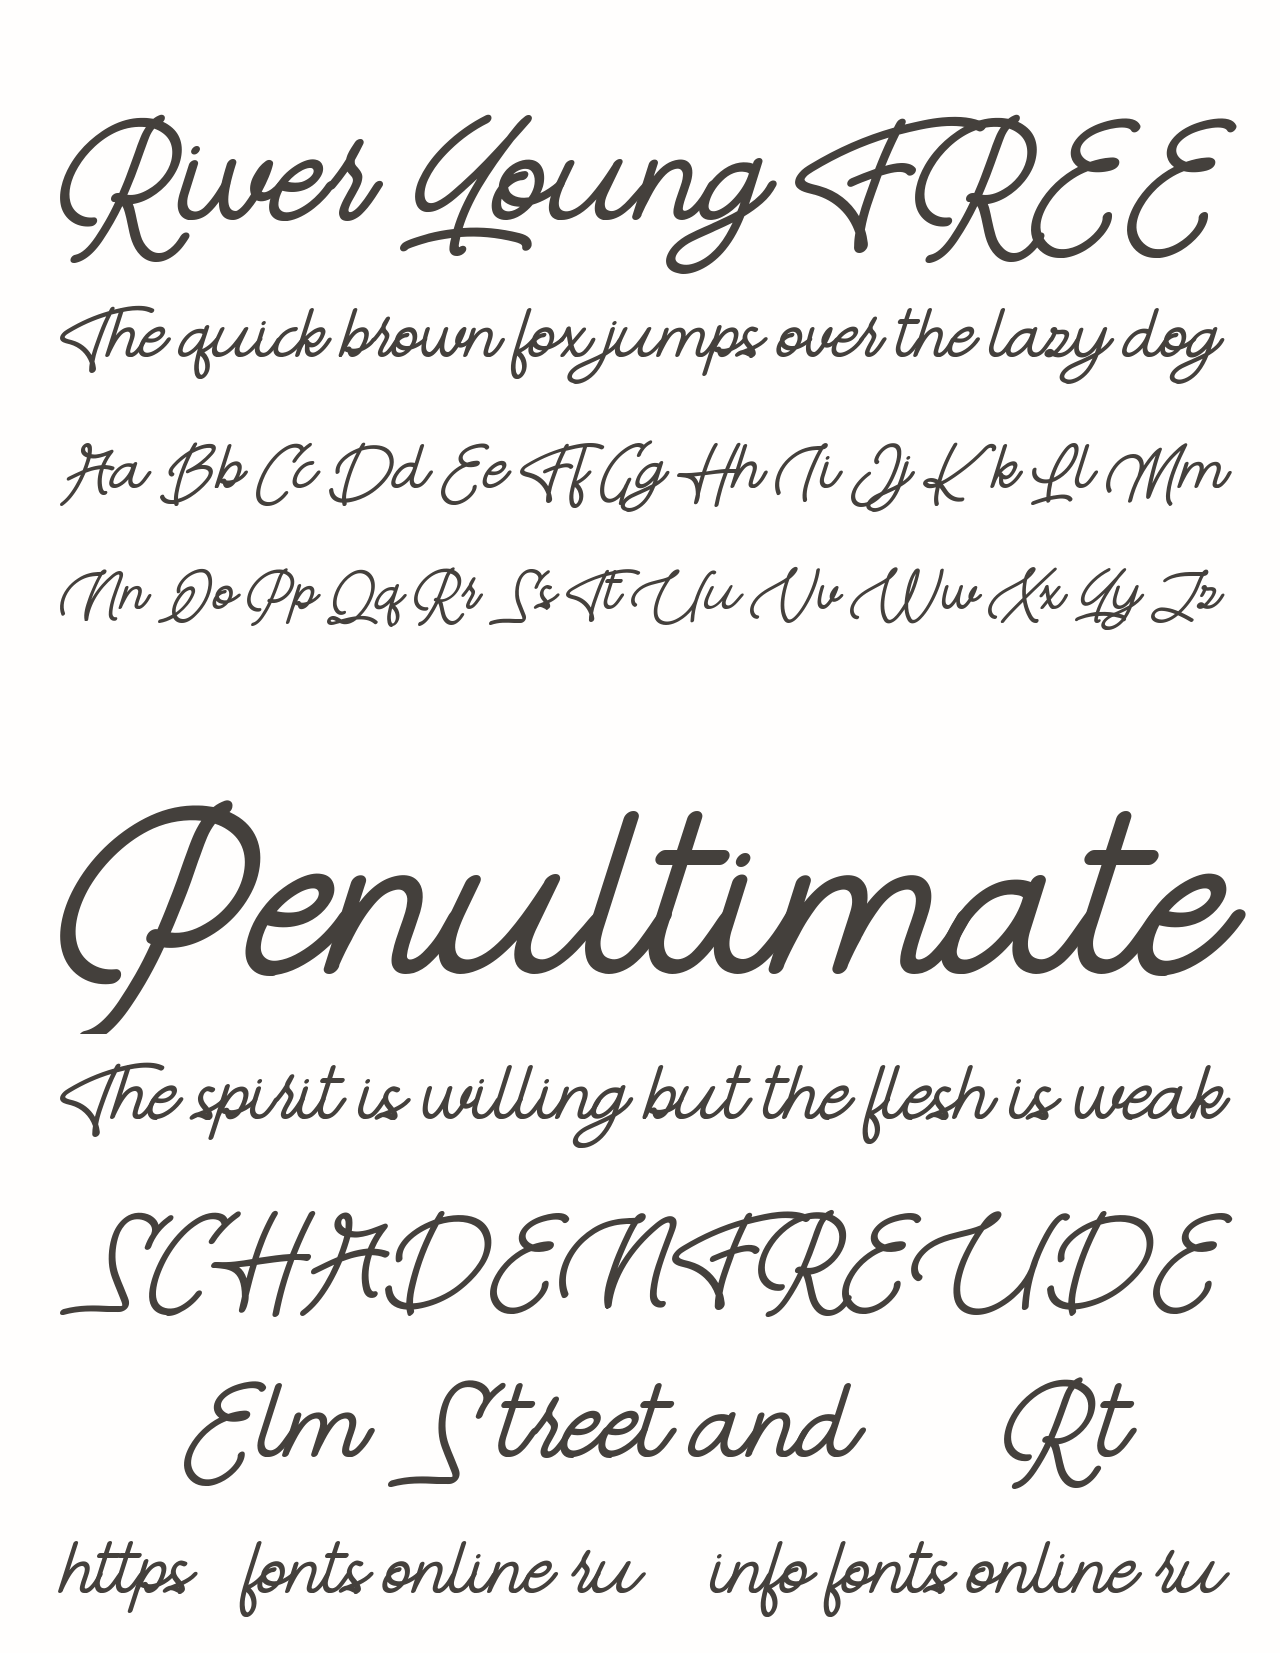 River Young FREE
The quick brown fox jumps over the lazy dog
Aa Bb Cc Dd Ee Ff Gg Hh Ii Jj Kk Ll Mm
Nn Oo Pp Qq Rr Ss Tt Uu Vv Ww Xx Yy Zz
Penultimate
The spirit is willing but the flesh is weak
SCHADENFREUDE
Elm Street and Rt
https fonts online ru info fonts online ru